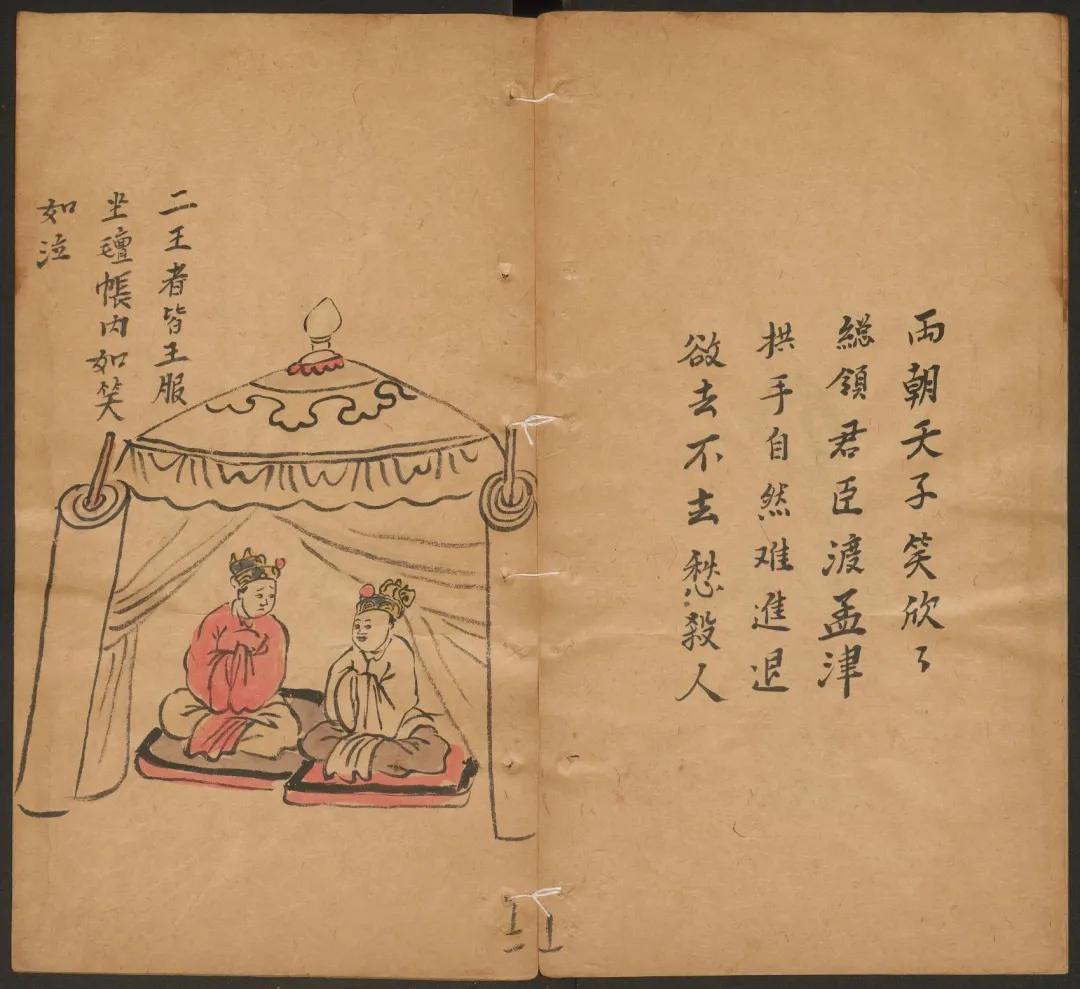 両朝天子笑欣〻
緫領君臣渡孟津
拱手自然难進退
欲去不去愁殺人
二王者皆王服
坐氊帳内如笑
如泣